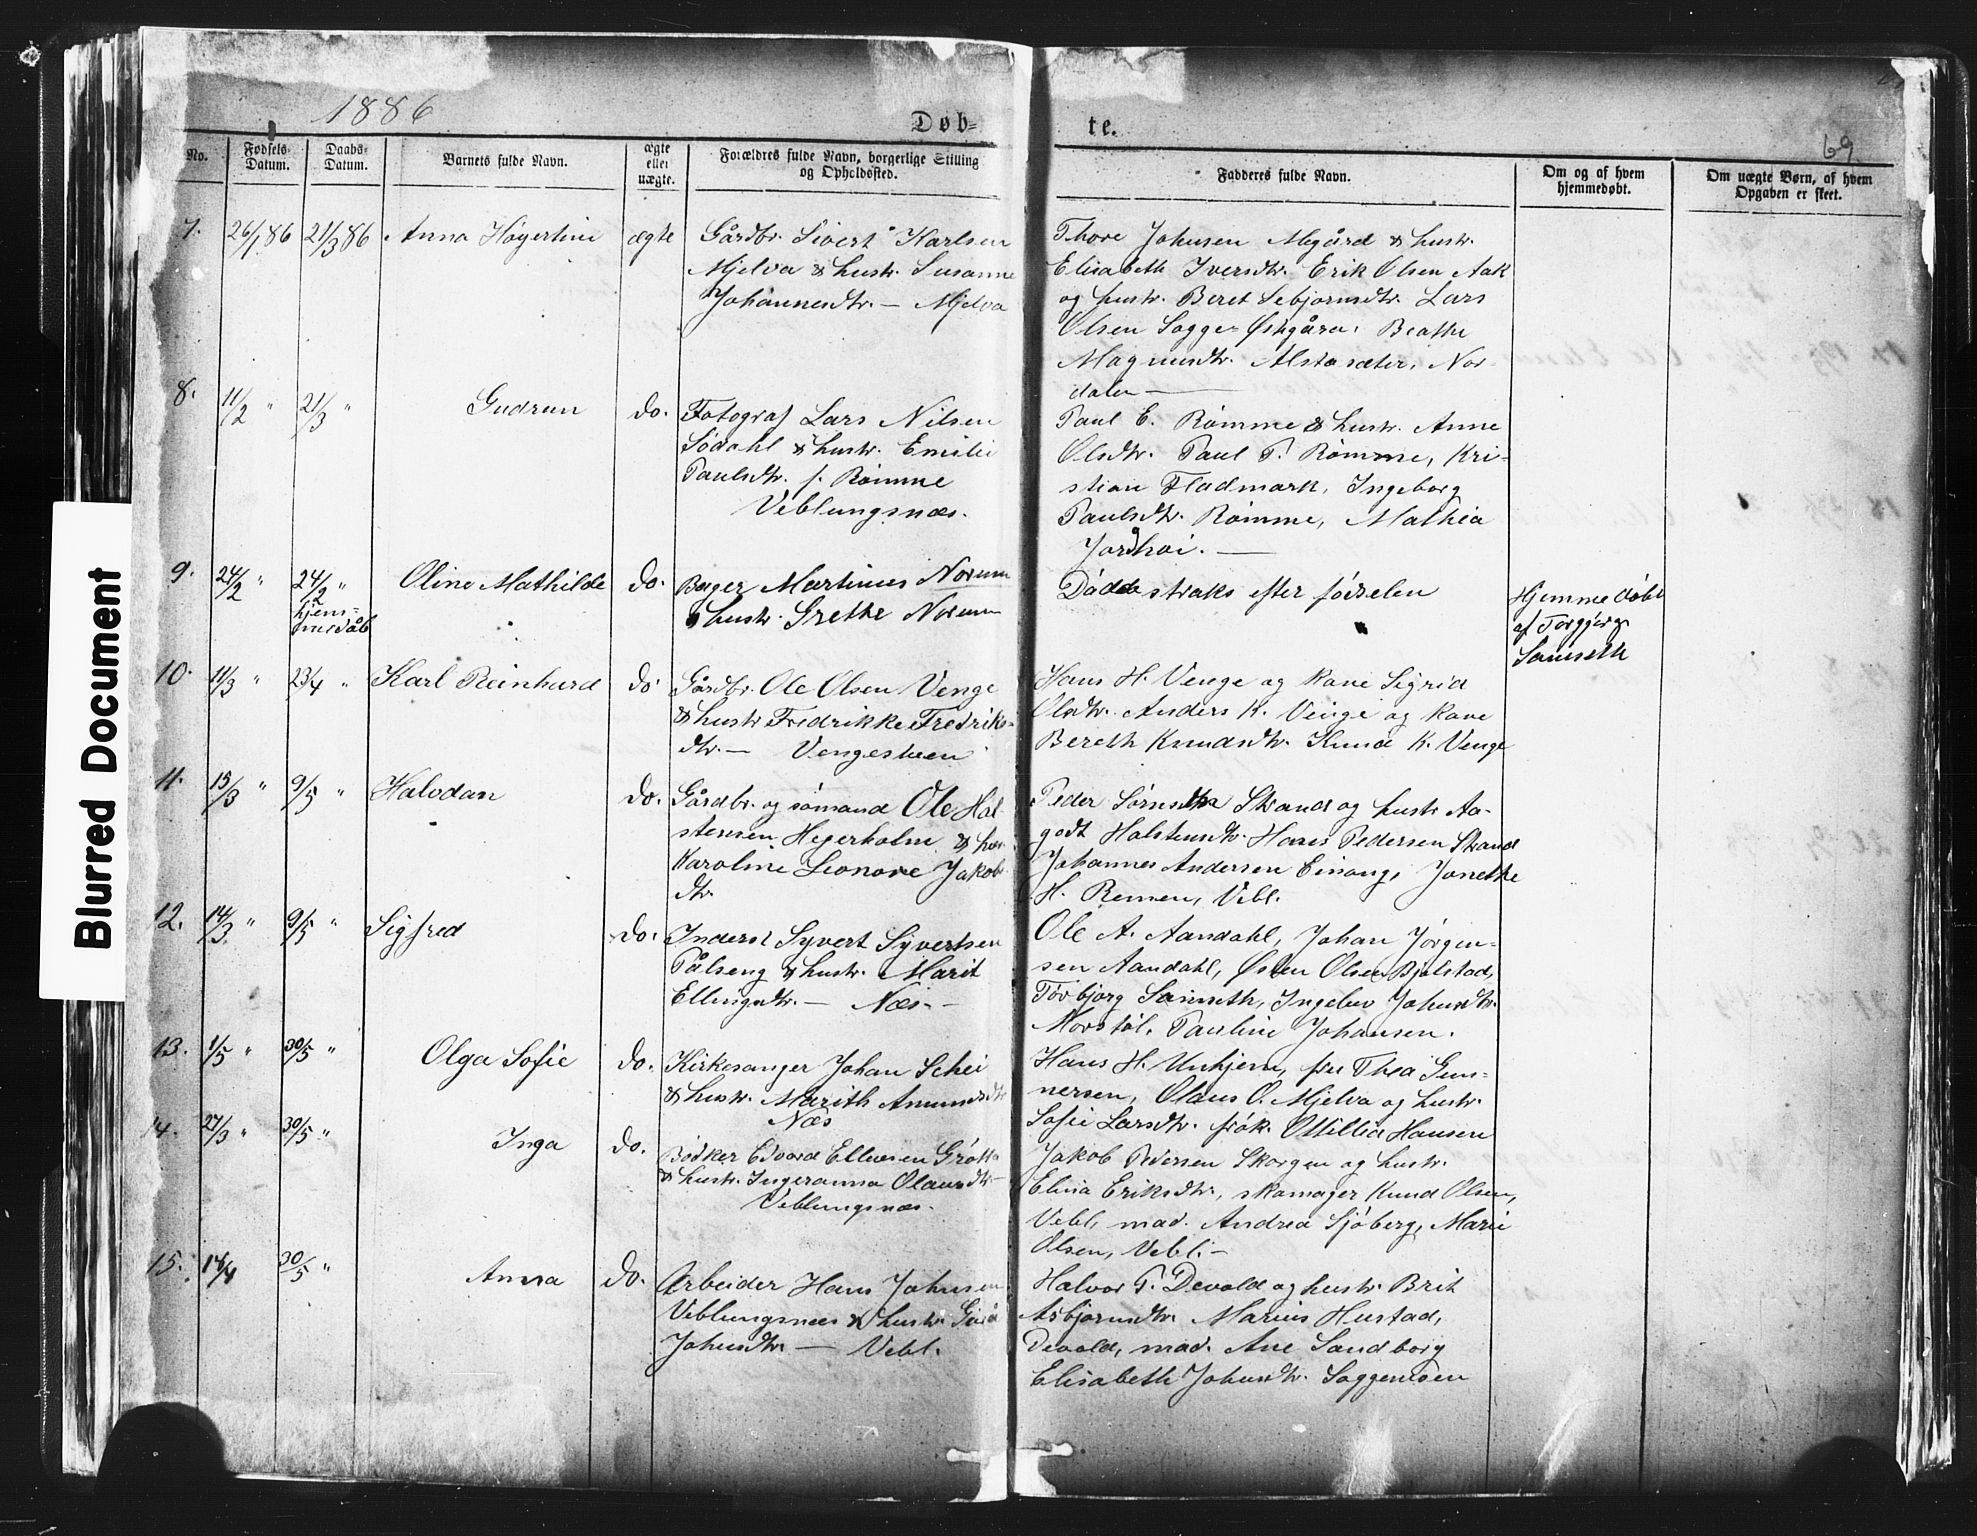 1886
69
Døb-
te.
No.
Fødsels-
Datum.
Daabs-
Datum.
Barnets fulde Navn.
ægte
eller
uægte.
Forældres fulde Navn, borgerlige Stilling
og Opholdssted.
Fadderes fulde Navn.
Om og af hvem
hjemmedøbt.
Om uægte Børn, af hvem
Opgaven er skeet.
7. 26/1 86 21/3 86 Anna Høyertine ægte
Gårdbr. Sivert Karlsen
Mjelva & hustr. Susanne
Johannesdtr. — Mjelva
Thore Johnsen Megård & hustr.
Elisabeth Iversdtr. Erik Olsen Aak
og hustr. Beret Sebjørnsdtr. Lars
Olsen Sogge-Østigård, Beathe
Magnusdtr. Alstasæter, Nor-
dalen —
8. 11/2 " 21/3 " Gudrun do.
Fotograf Lars Nilsen
Sødahl & hustr. Emilie
Paulsdtr. f. Rømme
Veblungsnæs.
Paul E. Rømme & hustr. Anne
Olsdtr. Paul P. Rømme, Kri-
stian Fladmark, Ingeborg
Paulsdtr. Rømme, Mathea
Jordhøi. —
9. 24/2 " 24/2 " Oline Mathilde do.
hjem-
medåb
Bager Martinus Norum
& hustr. Grethe Norum
Døde straks efter fødselen
Hjemmedøbt
af Torbjørg
Sauiseth
10. 11/3 " 23/4 " Karl Reinhard do
Gårdbr. Ole Olsen Venge
& hustr Fredrikke Fredriks-
dtr. — Vengesteen
Hans H. Venge og kone Sigrid
Olsdtr. Anders K. Venge og kone
Bereth Knudsdtr. Knud K. Venge
11. 15/3 " 9/5 " Halvdan do.
Gårdbr. og sømand Ole Hal-
stensen Hejerholm & hus
Karoline Leonore Jakobs
dtr.
Peder Strand og hustr Aa-
godt Halstensdtr. Hans Pedersen Strand
Johannes Andersen Einang, Jonethe
H. Remen, Vebl.
12. 14/3 " 9/5 " Sigfred do.
Inderst Syvert Syvertsen
Pålseng & hustr. Marit
Ellingsdtr. — Næs —
Ole A. Aandahl, Johan Jørgen-
sen Aandahl, Østen Olsen Bjølstad,
Torbjørg Sauiseth, Ingebor Johnsdtr.
Morstøl, Pauline Johansen.
13. 1/5 " 30/5 " Olga Sofie do.
Kirkesanger Johan Schei
& hustr. Marith Amundsdtr
Næs
Hans H. Unhjem, fru Thea Gun-
nersen, Olaus O. Mjelva og hustr.
Sofie Larsdtr. frøk. Ottillia Hansen
14. 27/3 " 30/5 " Inga do.
Bødker Edvard Ellensen Grøtta
& hustr. Ingeranna Olausdtr —
Veblungsnæs.
Jakob Pedersen Skorgen og hustr.
Elina Eriksdtr., skomager Knud Olsen,
Vebl, mad. Andrea Sjøberg, Marie
Olsen, Vebl. —
15. 14/4 30/5 " Anna do.
Arbeider Hans Johnsen
Veblungsnæs & hustr.
Johnsdtr. — Vebl.
Halvor T. Devold og hustr. Brit
Asbjørnsdtr. Marius Hustad,
Devold, mad. Ane Sandborg
Elisabeth Johnsdtr. Soggemoen
Blurred Document